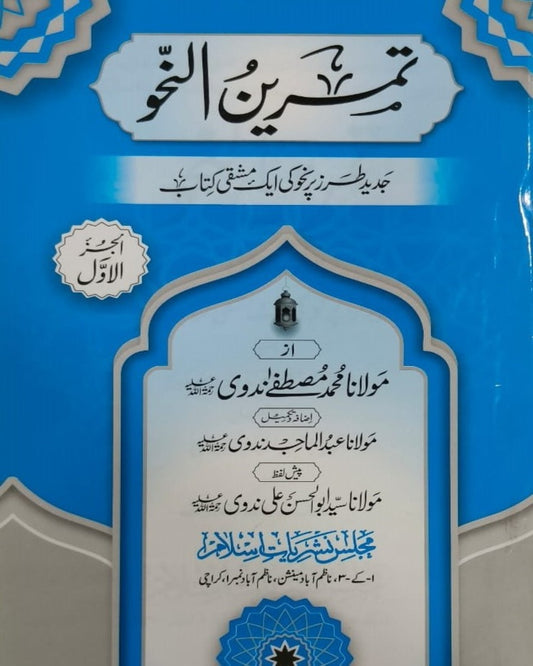 تمرین النحو
جدید طرز پر نحو کی ایک مشقی کتاب
الجزء
الاوّل
از
مولانا محمد مصطفےٰ ندوی رحمۃ اللہ علیہ
اضافہ و تکمیل
مولانا عبدالماجد ندوی رحمۃ اللہ علیہ
پیش لفظ
مولانا سیّد ابوالحسن علی ندوی رحمۃ اللہ علیہ
مجلس نشریات اسلام
۱- کے -۳، ناظم آباد مینشن، ناظم آباد نمبر۱، کراچی